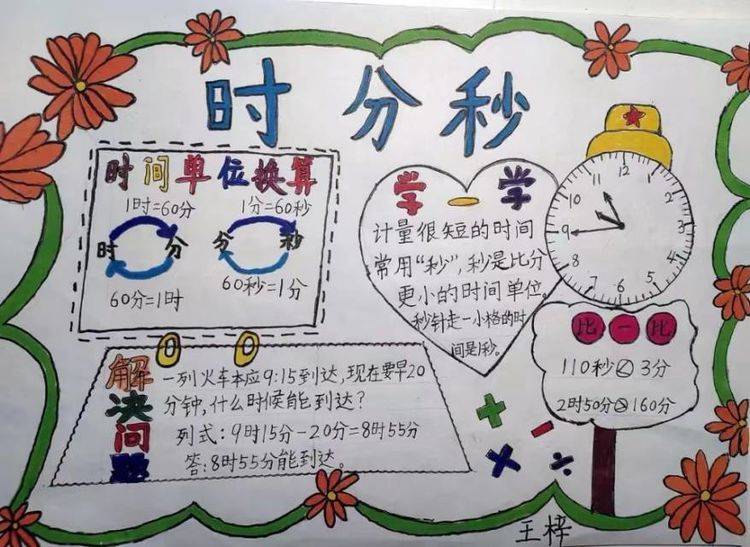 时分秒
时间单位换算
1时=60分 1分=60秒
时 分 分 秒
60分=1时 60秒=1分
学一学
计量很短的时间
常用“秒”,秒是比分
更小的时间单位。
秒针走一小格的时
间是1秒。
12
11 1
10 2
9 3
8 4
7 5
6
比一比
110秒<3分
2时50分>160分
解决问题
一列火车本应9:15到达,现在要早20
分钟,什么时候能到达?
列式:9时15分-20分=8时55分
答:8时55分能到达。
+ - × ÷
王梓